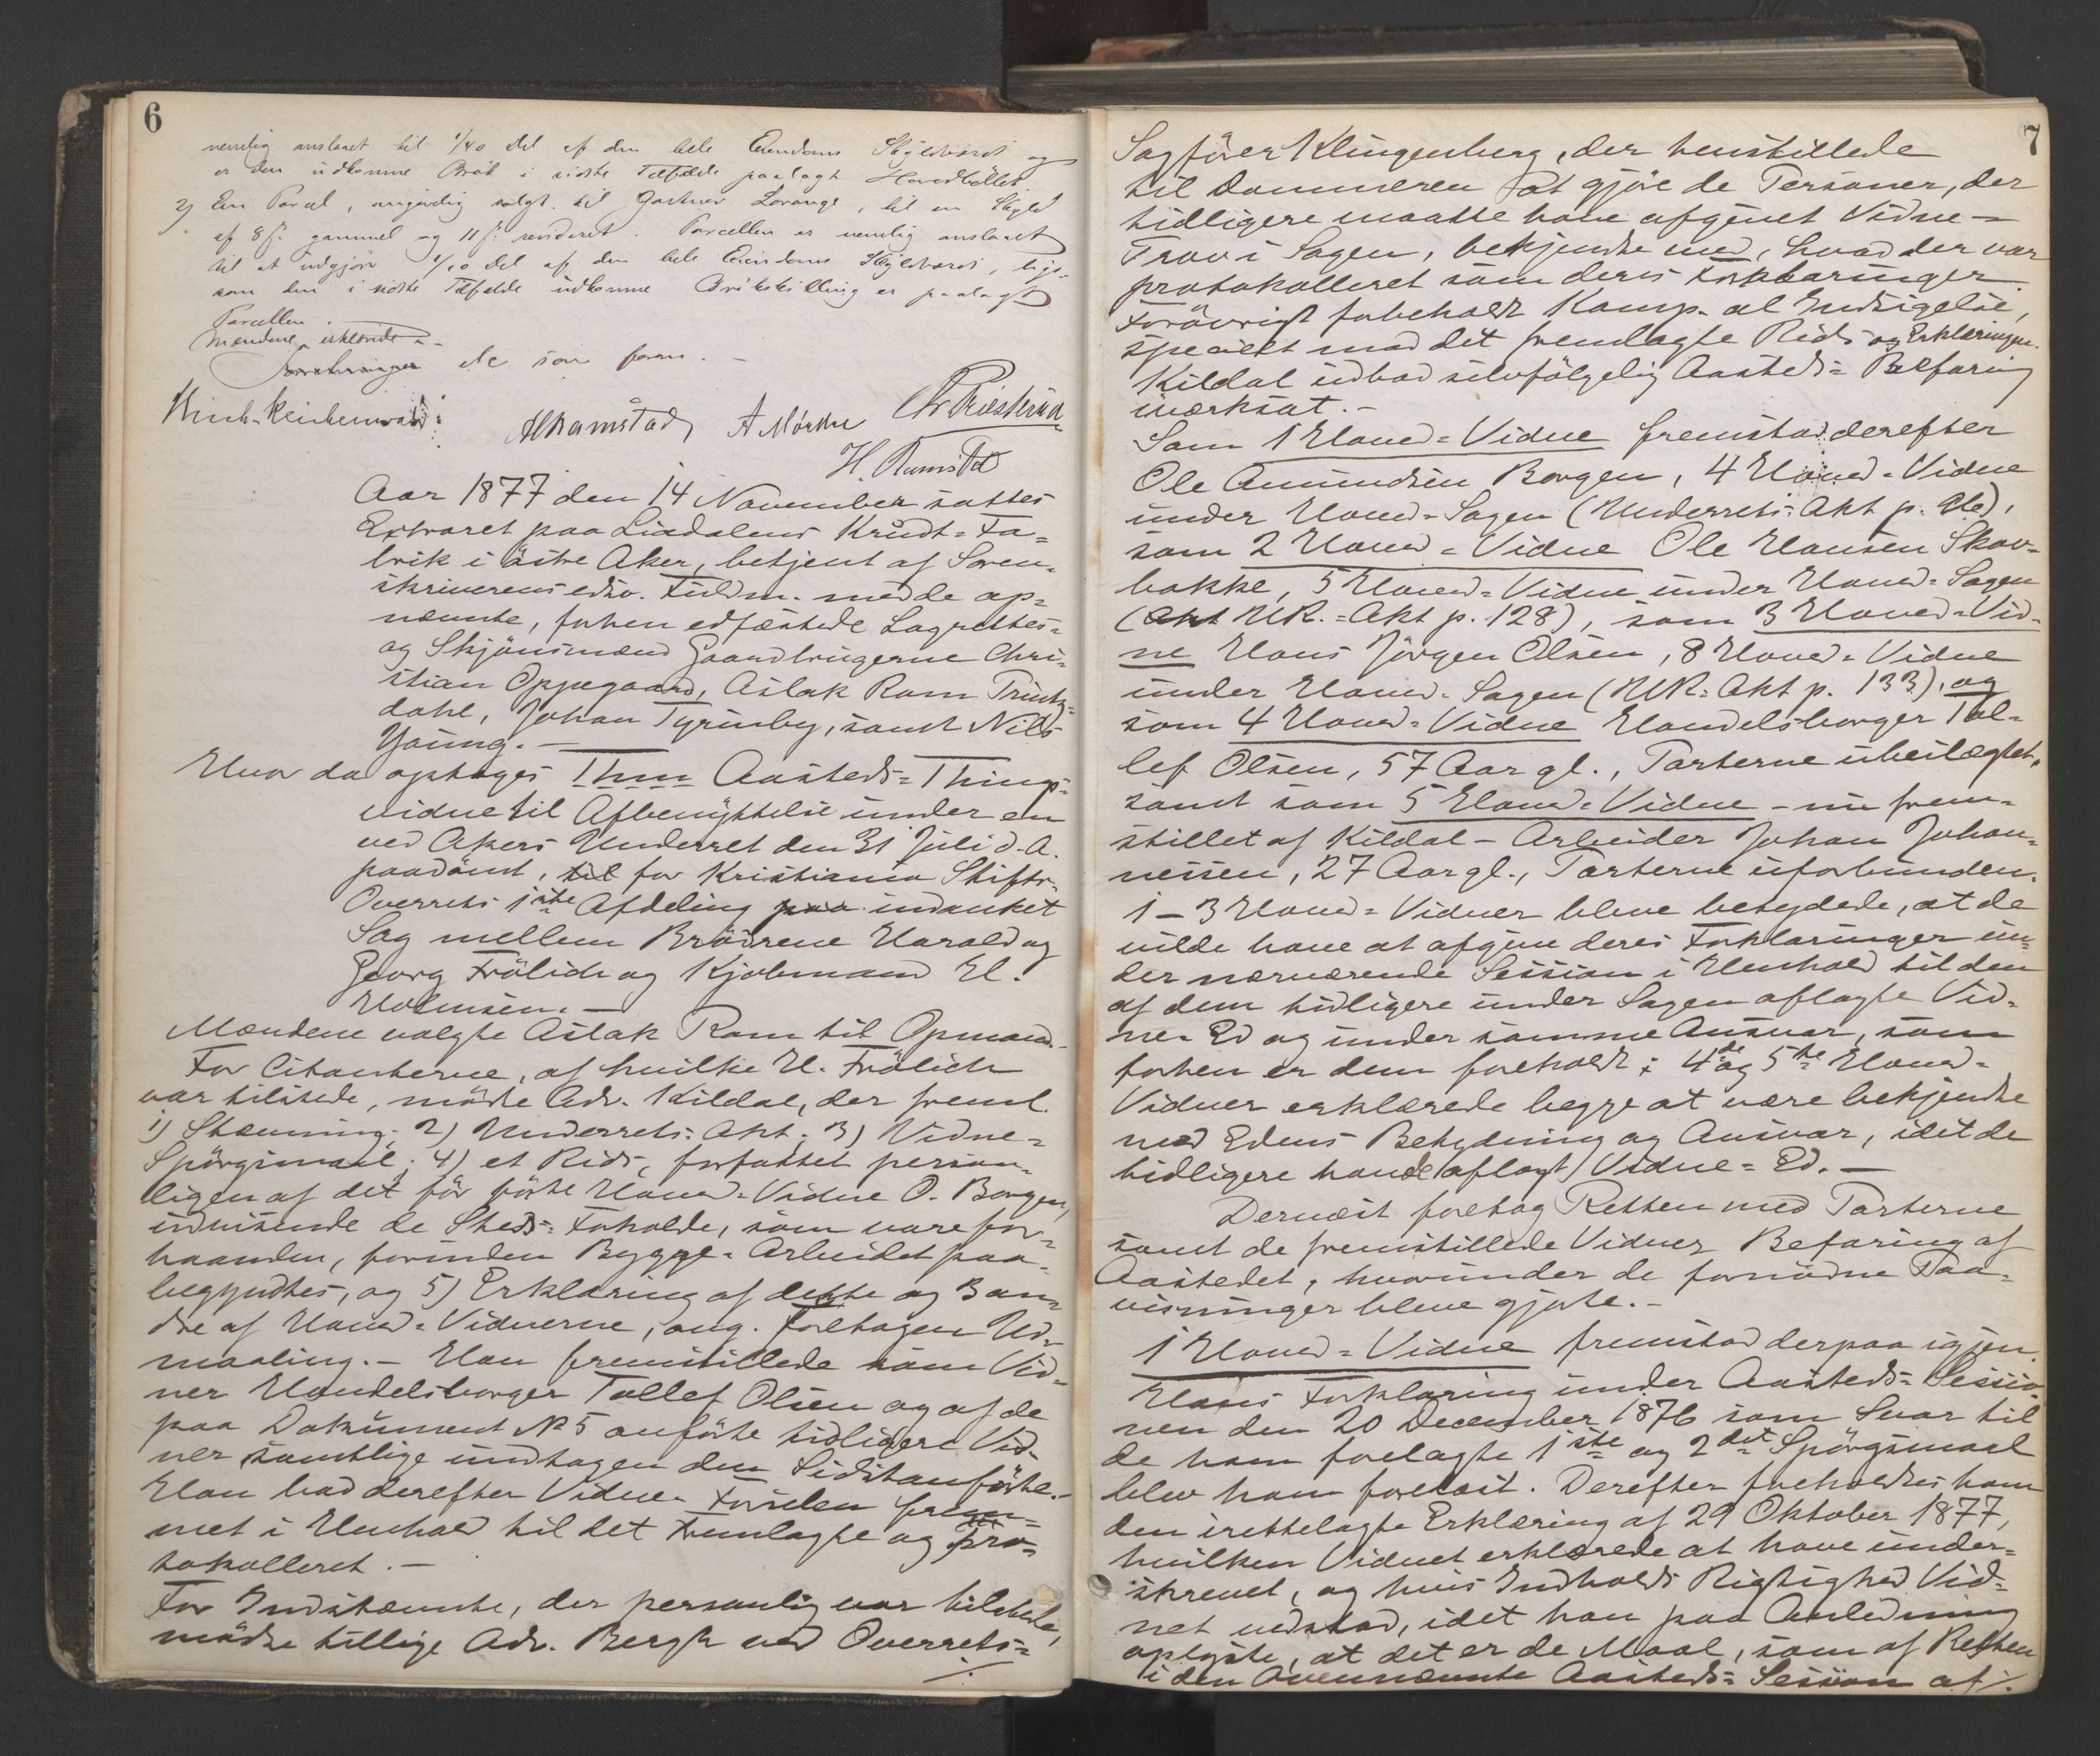 6
nemlig anslaaet til 1/40 Del af den hele Eiendoms Skyldværdi og
er den udkomne Brøk i sidste Tilfælde paalagt Hovedbøllet.
2) En Parcel, angivelig solgt til Gartner Lorange, til en Skyld
af 8 ß gammel og 11 ß revideret. Parcellen er nemlig anslaaet
til at udgjøre 1/10 Del af den hele Eiendoms Skyldværdi, lige-
som den i sidste Tilfælde udkomne Brøkskilling er paalagt
Parcellen.
Mændene erklærede
etc som foran. -
Hinch-Reichenwald: A Ramstad A Mørku Chr Præsterud
H. Ramstad
Aar 1877 den 14 November sattes
Extraret paa Liadalens Krudt=Fa=
brik i östre Aker, betjent af Soren-
skriverens edsv. Fuldm. med de op=
nævnte, forhen edfæstede Lagrettes=
og Skjönsmænd Gaardbrugerne Chri-
stian Oppegaard, Aslak Ram Trinter-
dahl, Johan Tyrinby, samt Nils
Young. -
Hvor da optages Thin Aasteds=Things-
vidne til Afbenyttelse under en
ved Akers Underret den 31 Juli d.A.
paadömt, til for Kristiania Stifts-
Overrets 1ste Afdeling paa indanket
Sag mellem Brödrene Harald og
Georg Frölich og Kjöbmand H.
Holmsen. -
Mændene valgte Aslak Ram til Opmand.
For Citanterne, af hvilke H. Frölich
var tilstede, mödte Adv. Kildal, der freml.
1) Stævning; 2) Underrets-Akt; 3) Vidne=
Spörgsmaal; 4) et Rids, forfattet person-
ligen af det för förte Hoved-Vidne O. Borgen,
udvisende de Steds=Forholde, som vare for-
haanden, forinden Bygge-Arbeidet paa-
begyndtes, og 5) Erklæring af dette og 3 an-
dre af Hoved-Vidnerne, ang. foretagen Ud-
maaling. - Han fremstillede som Vid-
ner Handelsborger Tollef Olsen og af de
paa Dokument No 5 anförte tidligere Vid-
ner samtlige undtagen den Sidstanförte. -
Han bad derefter Vidne-Förselen frem-
met i Henhold til det Fremlagte og Pro-
tokolleret. -
For Indstævnte, der personlig var tilstede,
mödte tillige Adv. Bergh ved Overrets=
7
Sagförer Klingenberg, der henstillede
til Dommeren at gjöre de Personer, der
tidligere maatte have afgivet Vidne-
Prov i Sagen, bekjendte med, hvad der var
protokolleret som deres Forklaringer.
Forövrigt forbeholdt Komp. al Indsigelse,
specielt mod det fremlagte Rids og Erklæringen.
Kildal udbad selvfölgelig Aasteds=Befaring
iværksat. -
Som 1 Hoved=Vidne fremstod derefter
Ole Amundsen Borgen, 4 Hoved-Vidne
under Hoved-Sagen (Underrets-Akt p. 96),
som 2 Hoved-Vidne Ole Hansen Skov-
bakke, 5 Hoved-Vidne under Hoved-Sagen
(Akt UR.=Akt p. 128), som 3 Hoved-Vid-
ne Hans Jörgen Olsen, 8 Hoved-Vidne
under Hoved-Sagen (UR=Akt p. 133), og
som 4 Hoved=Vidne Handelsborger Tol-
lef Olsen, 57 Aar gl., Parterne ubeslægtet,
samt som 5 Hoved-Vidne - nu frem-
stillet af Kildal - Arbeider Johan Johan-
nessen, 27 Aar gl., Parterne uforbunden.
1-3 Hoved=Vidner bleve betydede, at de
vilde have at afgive deres Forklaringer un-
der nærværende Session i Henhold til den
af dem tidligere under Sagen aflagte Vid-
ne-Ed og under samme Ansvar, som
forhen er dem foreholdt; 4de og 5te Hoved-
Vidner erklærede begge at være bekjendte
med Edens Betydning og Ansvar, idet de
tidligere havde aflagt Vidne=Ed. -
Dernæst foretog Retten med Parterne
samt de fremstillede Vidner Befaring af
Aastedet, hvorunder de fornödne Paa-
visninger bleve gjorte. -
1 Hoved=Vidne fremstod derpaa igjen.
Hans Forklaring under Aasteds=Sessio-
nen den 20 December 1876 som Svar til
de ham forelagte 1ste og 2det Spörgsmaal
blev ham forelæst. Derefter foreholdtes ham
den irettelagte Erklæring af 29 Oktober 1877,
hvilken Vidnet erklærede at have under-
skrevet, og hvis Indholds Rigtighed Vid-
net vedstod, idet han paa Anledning
oplyste, at det er de Maal, som af Retten
i den Ovennævnte Aasteds=Session af